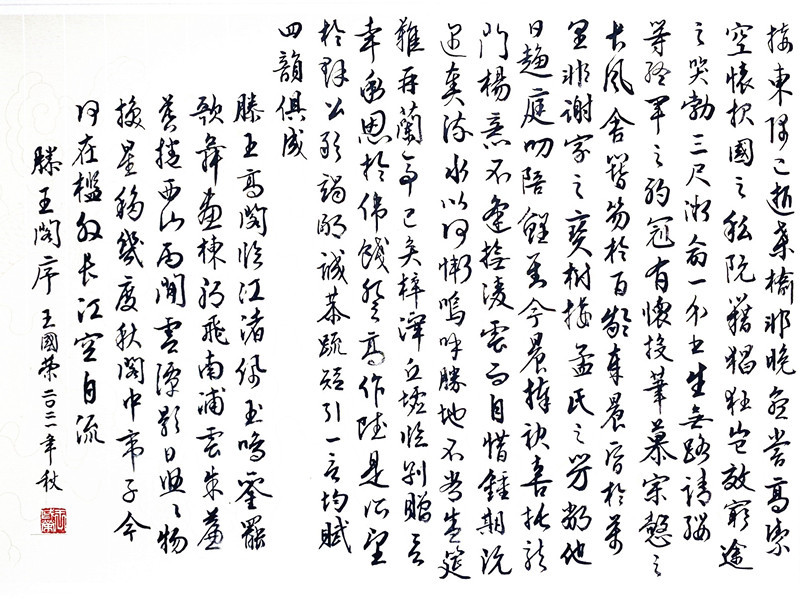 接東隅已逝桑榆非晚孟嘗高潔
空懷報國之私阮籍猖狂豈效窮途
之哭勃三尺微命一介書生無路請纓
等終軍之弱冠有懷投筆慕宗慤之
長風舍簪笏於百齡奉晨昏於萬
里非謝家之寶樹接孟氏之芳鄰他
日趨庭叨陪鯉對今晨捧袂喜托龍
門楊意不逢撫凌雲而自惜鍾期既
遇奏流水以何慚嗚呼勝地不常盛筵
難再蘭亭已矣梓澤丘墟臨別贈言
幸承恩於偉餞登高作賦是所望
於群公敢竭鄙誠恭疏短引一言均賦
四韻俱成
滕王高閣臨江渚佩玉鳴鑾罷
歌舞畫棟朝飛南浦雲朱簾
暮捲西山雨閒雲潭影日悠々物
換星移幾度秋閣中帝子今
何在檻外長江空自流
滕王閣序 王國榮二〇二一年秋